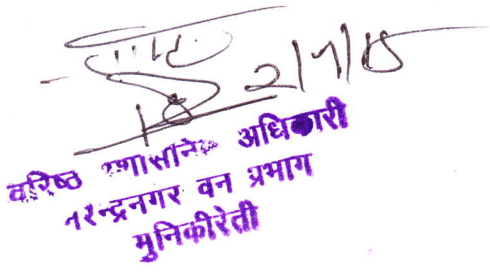 2/7/15
वरिष्ठ प्रशासनिक अधिकारी
नरेन्द्रनगर वन प्रभाग
मुनिकीरेती